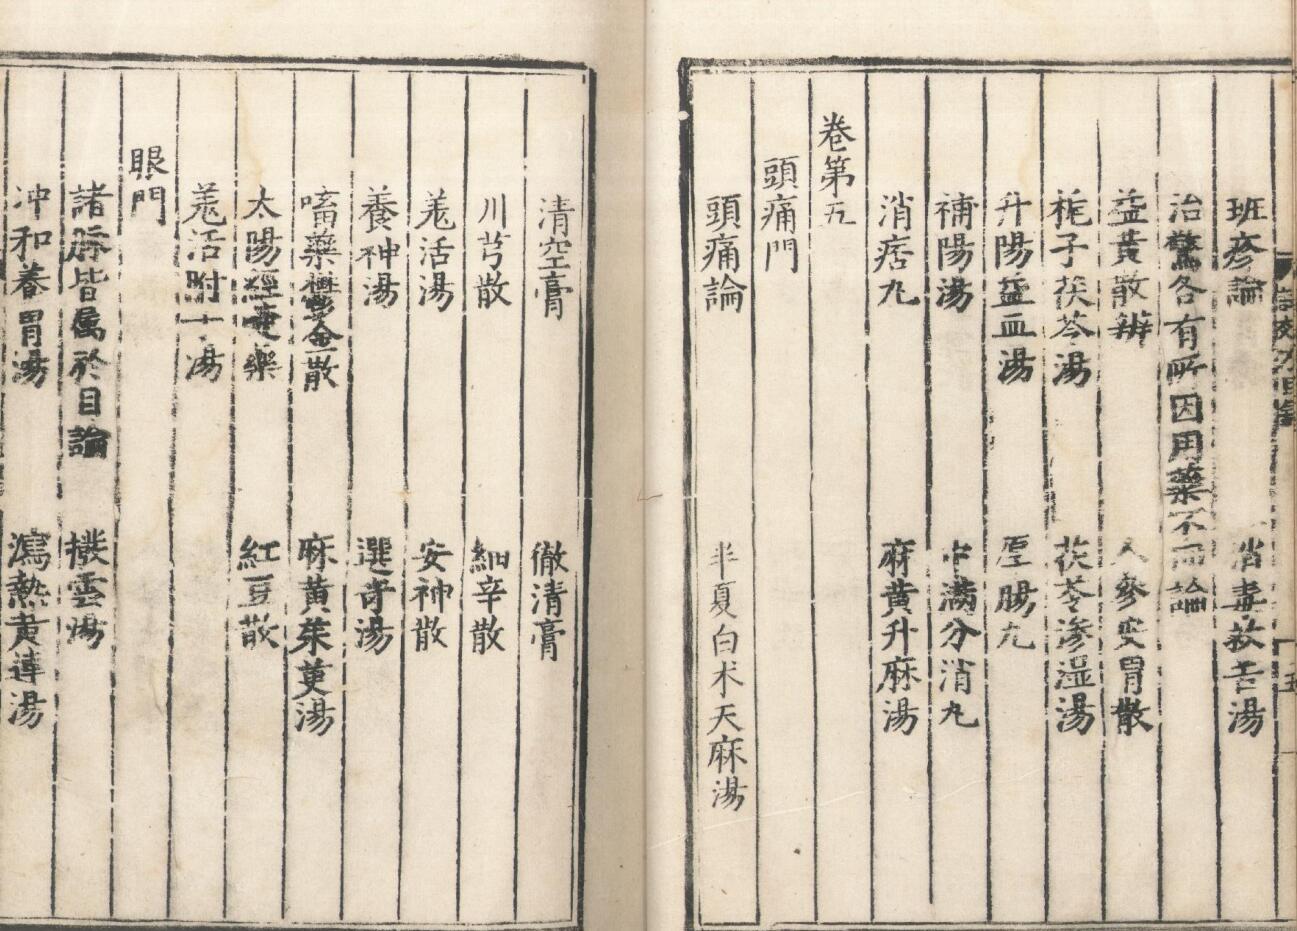 班疹論　消毒救苦湯
治驚各有所因用藥不同論
益黃散辨　人參安胃散
梔子茯苓湯　茯苓滲湿湯
升陽益血湯　厚腸丸
補陽湯　中滿分消丸
消痞丸　麻黄升麻湯
卷第五
頭痛門
頭痛論　半夏白术天麻湯
清空膏　徹清膏
川芎散　細辛散
羗活湯　安神散
養神湯　選竒湯
嗜藥欎金散　麻黄茱萸湯
太陽經藥　紅豆散
羗活附十湯
眼門
諸脉皆属於目論　撥雲湯
冲和養胃湯　瀉熱黄連湯